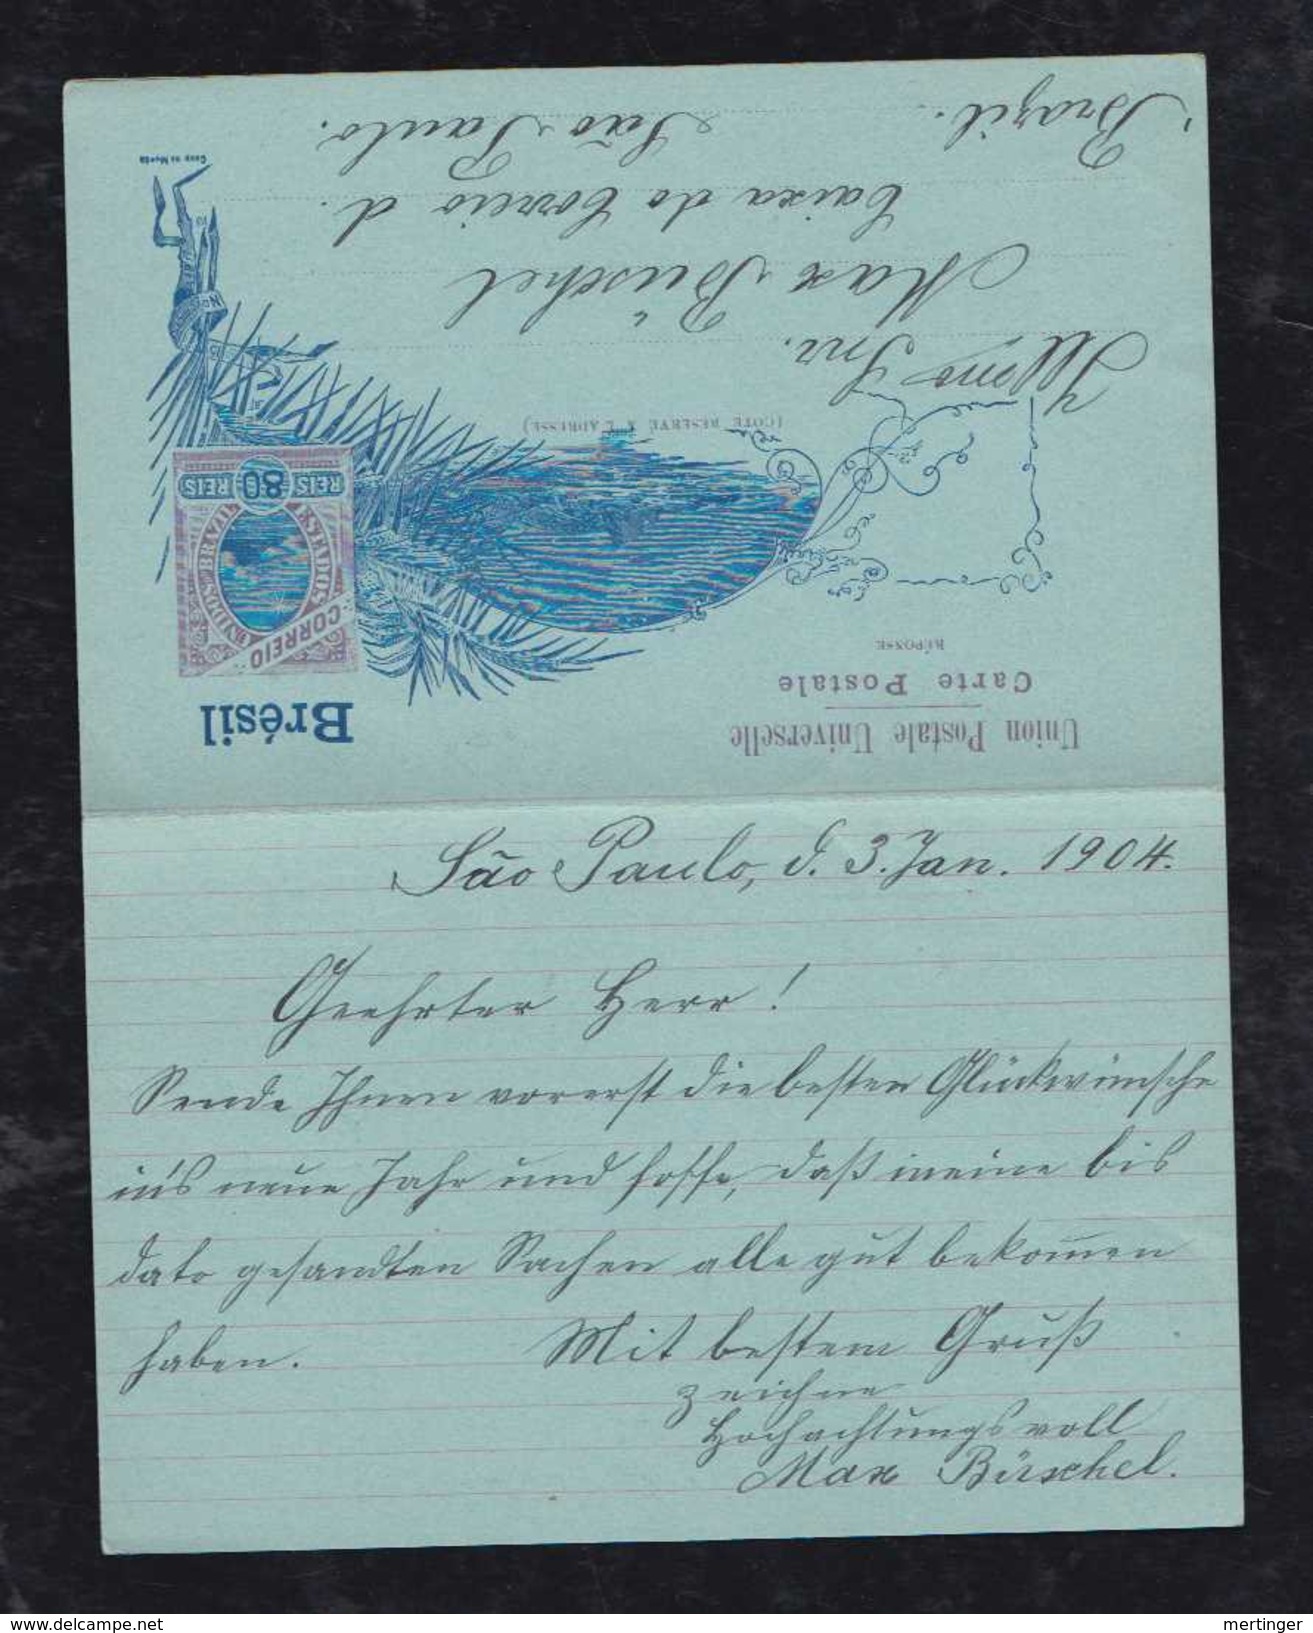 Union Postale Universelle
Carte Postale
RÉPONSE
Brésil
CORREIO
ESTADOS UNIDOS BRAZIL
REIS 80 REIS
(CÔTÉ RÉSERVÉ A L'ADRESSE)
Illmo Snr.
Max Büschel
Caixa do Correio d.
São Paulo.
Brazil.
CASA DA MOEDA
São Paulo, d. 3. Jan. 1904.
Geehrter Herr!
Sende Ihnen vorerst die besten Glückwünsche
in's neue Jahr und hoffe, daß meine bis
dato gesandten Sachen alle gut bekom̄en
haben. Mit bestem Gruß
zeichne
Hochachtungsvoll
Max Büschel.
mertinger